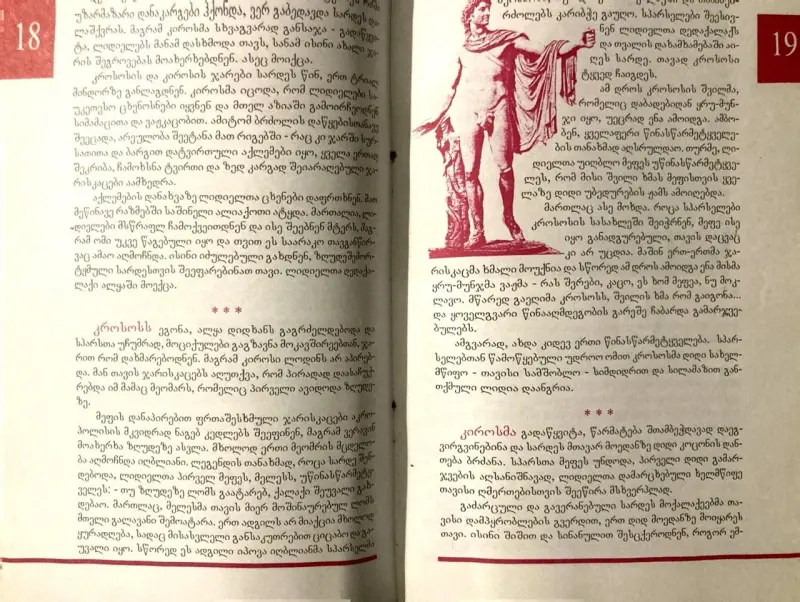 18
უზარმაზარი დანაკარგები ჰქონდა, ვერ გაბედავდა სარდეს და-
ლაშქვრას. მაგრამ კიროსმა სხვაგვარად განსაჯა - გადაწყვი-
ტა, ლიდიელებს მანამ დასხმოდა თავს, სანამ ისინი ახალი ჯა-
რის შეგროვებას მოახერხებდნენ. ასეც მოიქცა.
კროსოსის და კიროსის ჯარები სარდეს წინ, ერთ ტრიალ
მინდორზე განლაგდნენ. კიროსმა იცოდა, რომ ლიდიელები სა-
უკეთესო ცხენოსნები იყვნენ და მთელ აზიაში გამოირჩეოდნენ
სიმამაცითა და ვაჟკაცობით. ამიტომ ბრძოლის დაწყებისთანავე
შეეცადა, არეულობა შეეტანა მათ რიგებში - რაც კი ჯარში სურ-
სათითა და ბარგით დატვირთული აქლემები იყო, ყველა ერთად
შეკრიბა, ჩამოხსნა ტვირთი და ზედ კარგად შეიარაღებული ჯა-
რისკაცები აამხედრა.
აქლემების დანახვაზე ლიდიელთა ცხენები დაფრთხნენ. მათ
მეწინავე რაზმებში საშინელი ალიაქოთი ატყდა. მართალია, ლი-
დიელები მსწრაფლ ჩამოქვეითდნენ და ისე შეებნენ მტერს, მაგ-
რამ ომი უკვე წაგებული იყო და თვით ეს საარაკო თავგანწირ-
ვაც ამაო აღმოჩნდა. ისინი იძულებული გახდნენ, ზღუდემოშორ-
ტყმული სარდესთვის შეეფარებინათ თავი. ლიდიელთა დედაქა-
ლაქი ალყაში მოექცა.
***
კროსოსს ეგონა, ალყა დიდხანს გაგრძელდებოდა და
სპარსთა უჩუმრად, მოციქულები გაგზავნა მოკავშირეებთან, ჯა-
რით რომ დახმარებოდნენ. მაგრამ კიროსი ლოდინს არ აპირებ-
და. მან თავის ჯარისკაცებს აღუთქვა, რომ პირადად დაასაჩუქ-
რებდა იმ მამაც მეომარს, რომელიც პირველი ავიდოდა ზღუდე-
ზე.
მეფის დანაპირებით ფრთაშესხმული ჯარისკაცები აკრო-
პოლისის მკვიდრად ნაგებ კედლებს შეეფინენ, მაგრამ ვერავინ
მოახერხა ზღუდეზე ასვლა. მხოლოდ ერთი მეომრის მცდელო-
ბა აღმოჩნდა იღბლიანი. ლეგენდის თანახმად, როცა სარდე შენ-
დებოდა, ლიდიელთა პირველ მეფეს, მელესს, უწინასწარმეტყ-
ველეს: - თუ ზღუდეზე ლომს გაატარებ, ქალაქი შეუვალი გახ-
დებაო. მართლაც, მელესმა თავის მიერ მოშინაურებულ ლომს
მთელი გალავანი შემოატარა. ერთ ადგილს არ მიაქცია მხოლოდ
ყურადღება, სადაც მისასვლელი განსაკუთრებით ციცაბო და გა-
უვალი იყო. სწორედ ეს ადგილი იპოვა იღბლიანმა სპარსელმა
19
რძოლებს კარიბჭე გაუღო. სპარსელები შეესივ-
ნენ ლიდიელთა დედაქალაქს
და თვალის დახამხამებაში აი-
ღეს სარდე. თავად კროსოსი
ტყვედ ჩაიგდეს.
ამ დროს კროსოსის შვილმა,
რომელიც დაბადებიდან ყრუ-მუნ-
ჯი იყო, უეცრად ენა ამოიდგა. ამბო-
ბენ, ყველაფერი წინასწარმეტყველე-
ბის თანახმად აღსრულდაო. თურმე, ლი-
დიელთა უიღბლო მეფეს უწინასწარმეტყვე-
ლეს, რომ მისი შვილი ხმას მეფისთვის ყვე-
ლაზე დიდი უბედურების ჟამს ამოიღებდა.
მართლაც ასე მოხდა. როცა სპარსელები
კროსოსის სასახლეში შეიჭრნენ, მეფე ისე
იყო განადგურებული, თავის დაცვაც
კი არ უცდია. მაშინ ერთ-ერთმა ჯა-
რისკაცმა ხმალი მოუქნია და სწორედ ამ დროს ამოიდგა ენა მისმა
ყრუ-მუნჯმა ვაჟმა - რას შერები, კაცო, ეს ხომ მეფეა, ნუ მოკ-
ლავო. მწარედ გაეღიმა კროსოსს, შვილის ხმა რომ გაიგონა...
და ყოველგვარი წინააღმდეგობის გარეშე ჩაბარდა გამარჯვე-
ბულებს.
ამგვარად, ახდა კიდევ ერთი წინასწარმეტყველება. სპარ-
სელებთან წამოწყებული უდროო ომით კროსოსმა დიდი სახელ-
მწიფო - თავისი სამშობლო - სიმდიდრით და სილამაზით გან-
თქმული ლიდია დაანგრია.
***
კიროსმა გადაწყვიტა, წარმატება შთამბეჭდავად დაეგ-
ვირგვინებინა და სარდეს მთავარ მოედანზე დიდი კოცონის დან-
თება ბრძანა. სპარსთა მეფეს უნდოდა, პირველი დიდი გამარ-
ჯვების აღსანიშნავად, ლიდიელთა დამარცხებული ხელმწიფე
თავისი ღმერთებისთვის შეეწირა მსხვერპლად.
გაძარცული და გავერანებული სარდეს მოქალაქეებმა თა-
ვისი დამპყრობლების გვერდით, ერთ დიდ მოედანზე მოიყარეს
თავი. ისინი შიშით და სინანულით შესცქეროდნენ, როგორ ემ-